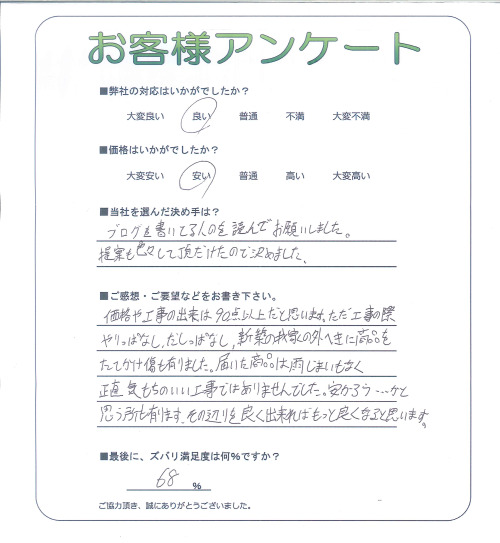 お客様アンケート
■弊社の対応はいかがでしたか？
大変良い 良い 普通 不満 大変不満
■価格はいかがでしたか？
大変安い 安い 普通 高い 大変高い
■当社を選んだ決め手は？
ブログを書いてる人のを読んでお願いしました。
提案も色々して頂だけたので決めました、
■ご感想・ご要望などをお書き下さい。
価格や工事の出来は90点以上だと思います。ただ工事の際
やりっぱなし、だしっぱなし、新築の我家の外へきに商品を
たてかけ傷も有りました。届いた商品は雨じまいもなく
正直気もちのいい工事ではありませんでした。安かろう…かと
思う所も有ります。その辺りを良く出来ればもっと良くなると思います。
■最後に、ズバリ満足度は何％ですか？
68 %
ご協力頂き、誠にありがとうございました。